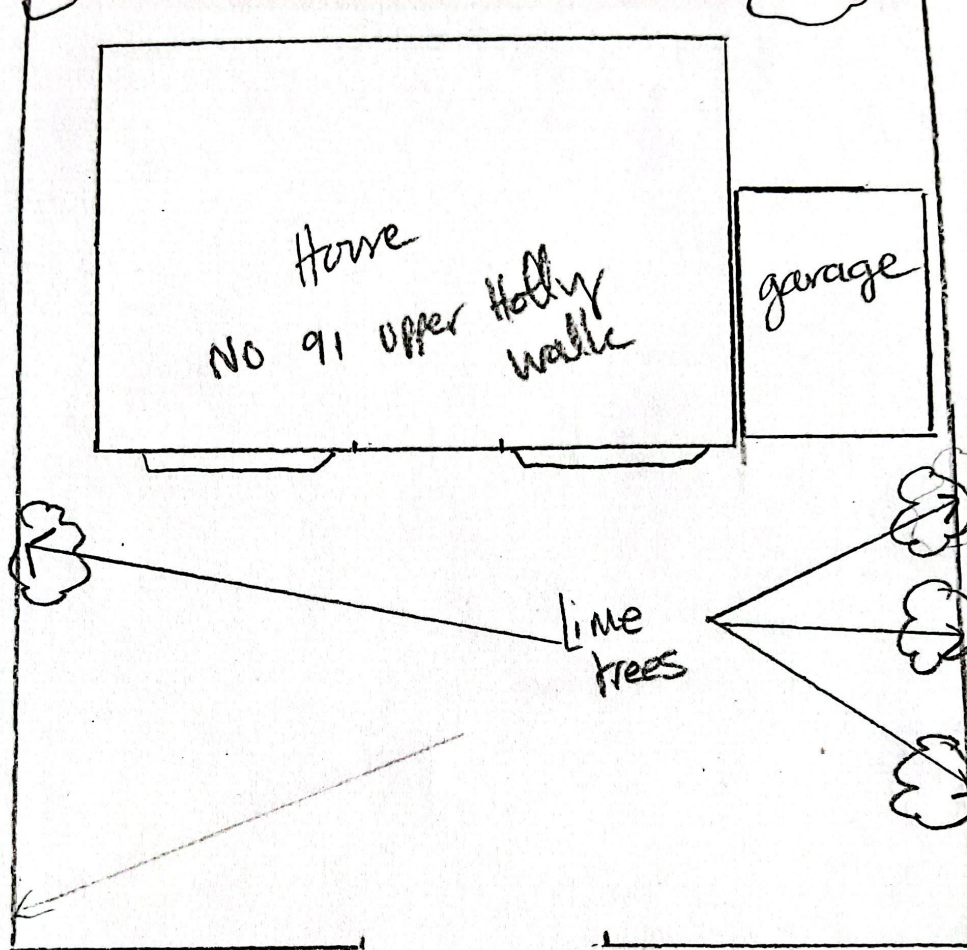 House
No 91 upper Holly
walk
garage
Lime
trees